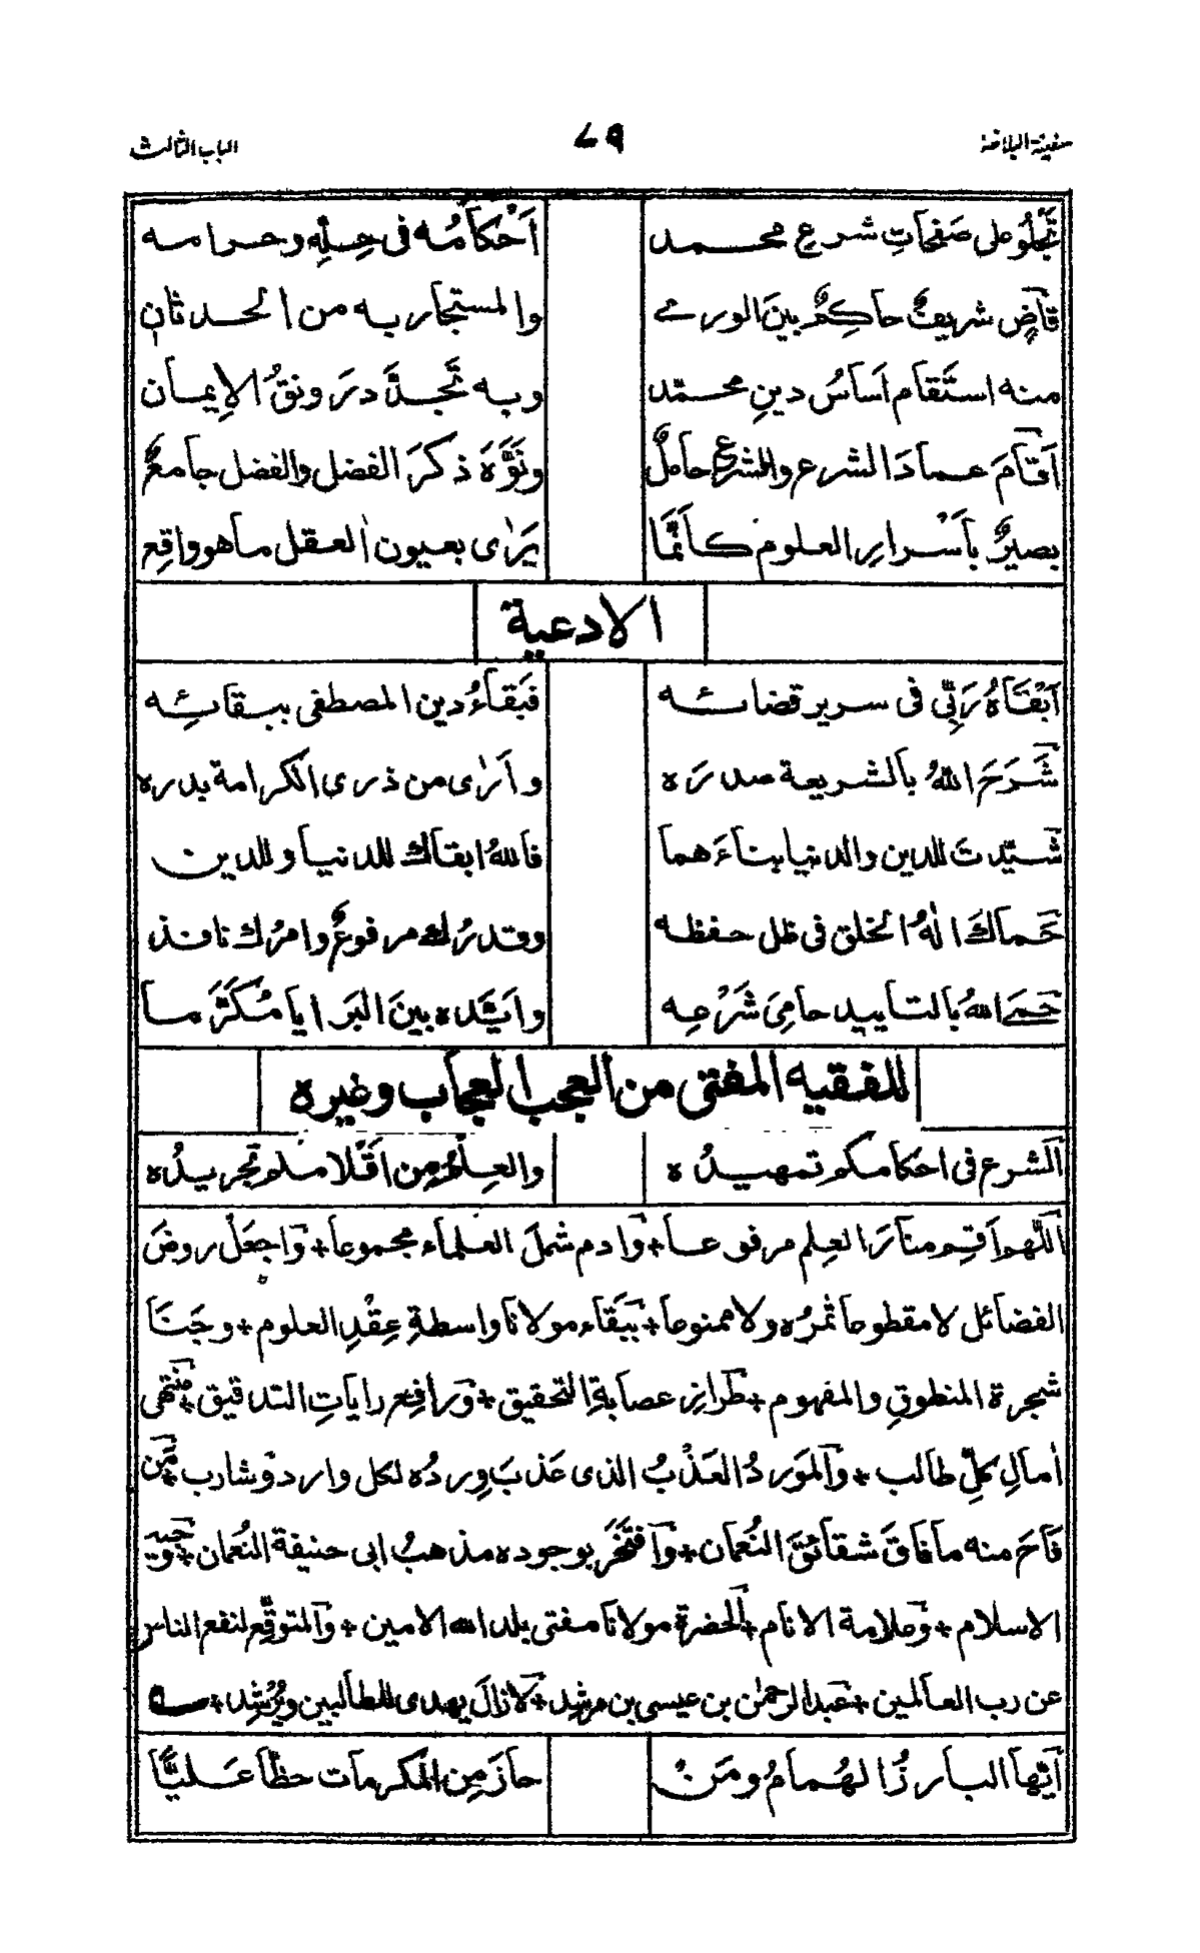 سفينة البلاغة ٧٩ الباب الثالث
تَجْلُو على صَفَحاتِ شرعِ محمد أَحْكامُه فى حِلِّهِ وحرامه
قاضٍ شريفٌ حاكِمٌ بينَ الورى والمستجار به من الحدثان
منه استَقام اَساسُ دينِ محمّد وبه تَجدَّدَ رَونقُ الإيمان
اَقامَ عمادَ الشرع والشرع حاملٌ ونَوَّهَ ذكرَ الفضل والفضل جامعٌ
بصيرٌ بأَسْرارِ العلوم كأَنَّما يَرٰى بعيون العقل ما هو واقِع
الادعية
اَبْقاهُ رَبِّى فى سرير قضائه فبَقاءُ دين المصطفى ببقائِه
شَرَحَ اللهُ بالشريعة صدرَه وأَرٰى من ذرى الكرامة بدره
شيّدتَ للدين والدنيا بناءَهما فاللهُ ابقاك للدنيا وللدين
حَماكَ اِلٰهُ الخلق فى ظل حفظه وقدرُك مرفوعٌ وامرُك نافذ
حَمَى اللهُ بالتاييد حامِىَ شَرْعِه وايَّده بينَ البَرَايا مُكَرَّما
للفقيه المفتى من العجب العجاب وغيره
اَلشرع فى احكامكم تمهيدُه والعِلمُ مِن اَقْلامكم تجريدُه
اَللّهم اَقِم منارَ العِلم مرفوعا+ وَادم شملَ العلماء مجموعا+ وَاجعَلْ روضَ
الفضائل لا مقطوعا ثمرُه ولا ممنوعا+ ببَقاء مولانا واسطةِ عِقْدِ العلوم+ وجَنَا
شجرة المنطوقِ والمفهوم+ طرازِ عصابةِ التحقيق+ وَرافِع راياتِ التدقيق+ منتهى
اٰمالِ كلِّ طالب+ وَالمَورِدُ العَذْبُ الذى عَذبَ وِردُه لكل وارد وشارب+ مَن
فاحَ منه ما فاقَ شقائقَ النُعمان+ وَافتَخَر بوجوده مذهبُ ابى حنيفة النُعمان+ وَحيد
الاسلام+ وَعلامة الانام+ اَلحضرة مولانا مفتى بلد الله الامين+ وَالمتوقّع لنفع الناس
عن رب العالمين+ عَبد الرحمٰن بن عيسى بن مرشِد+ لَازالَ يهدى للطالبين ويُرْشِد+
اَيّها البارزُ الهُمامُ ومَنْ حازَ مِن المكرمات حظّاً عَليّاً